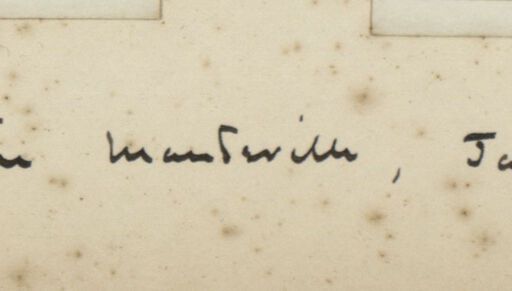 Mandeville, Ja